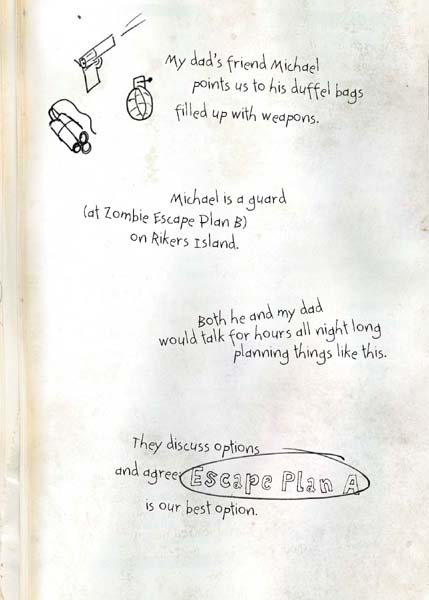 My dad's friend Michael
points us to his duffel bags
filled up with weapons.
Michael is a guard
(at Zombie Escape Plan B)
on Rikers Island.
Both he and my dad
would talk for hours all night long
planning things like this.
They discuss options
and agree: Escape Plan A
is our best option.